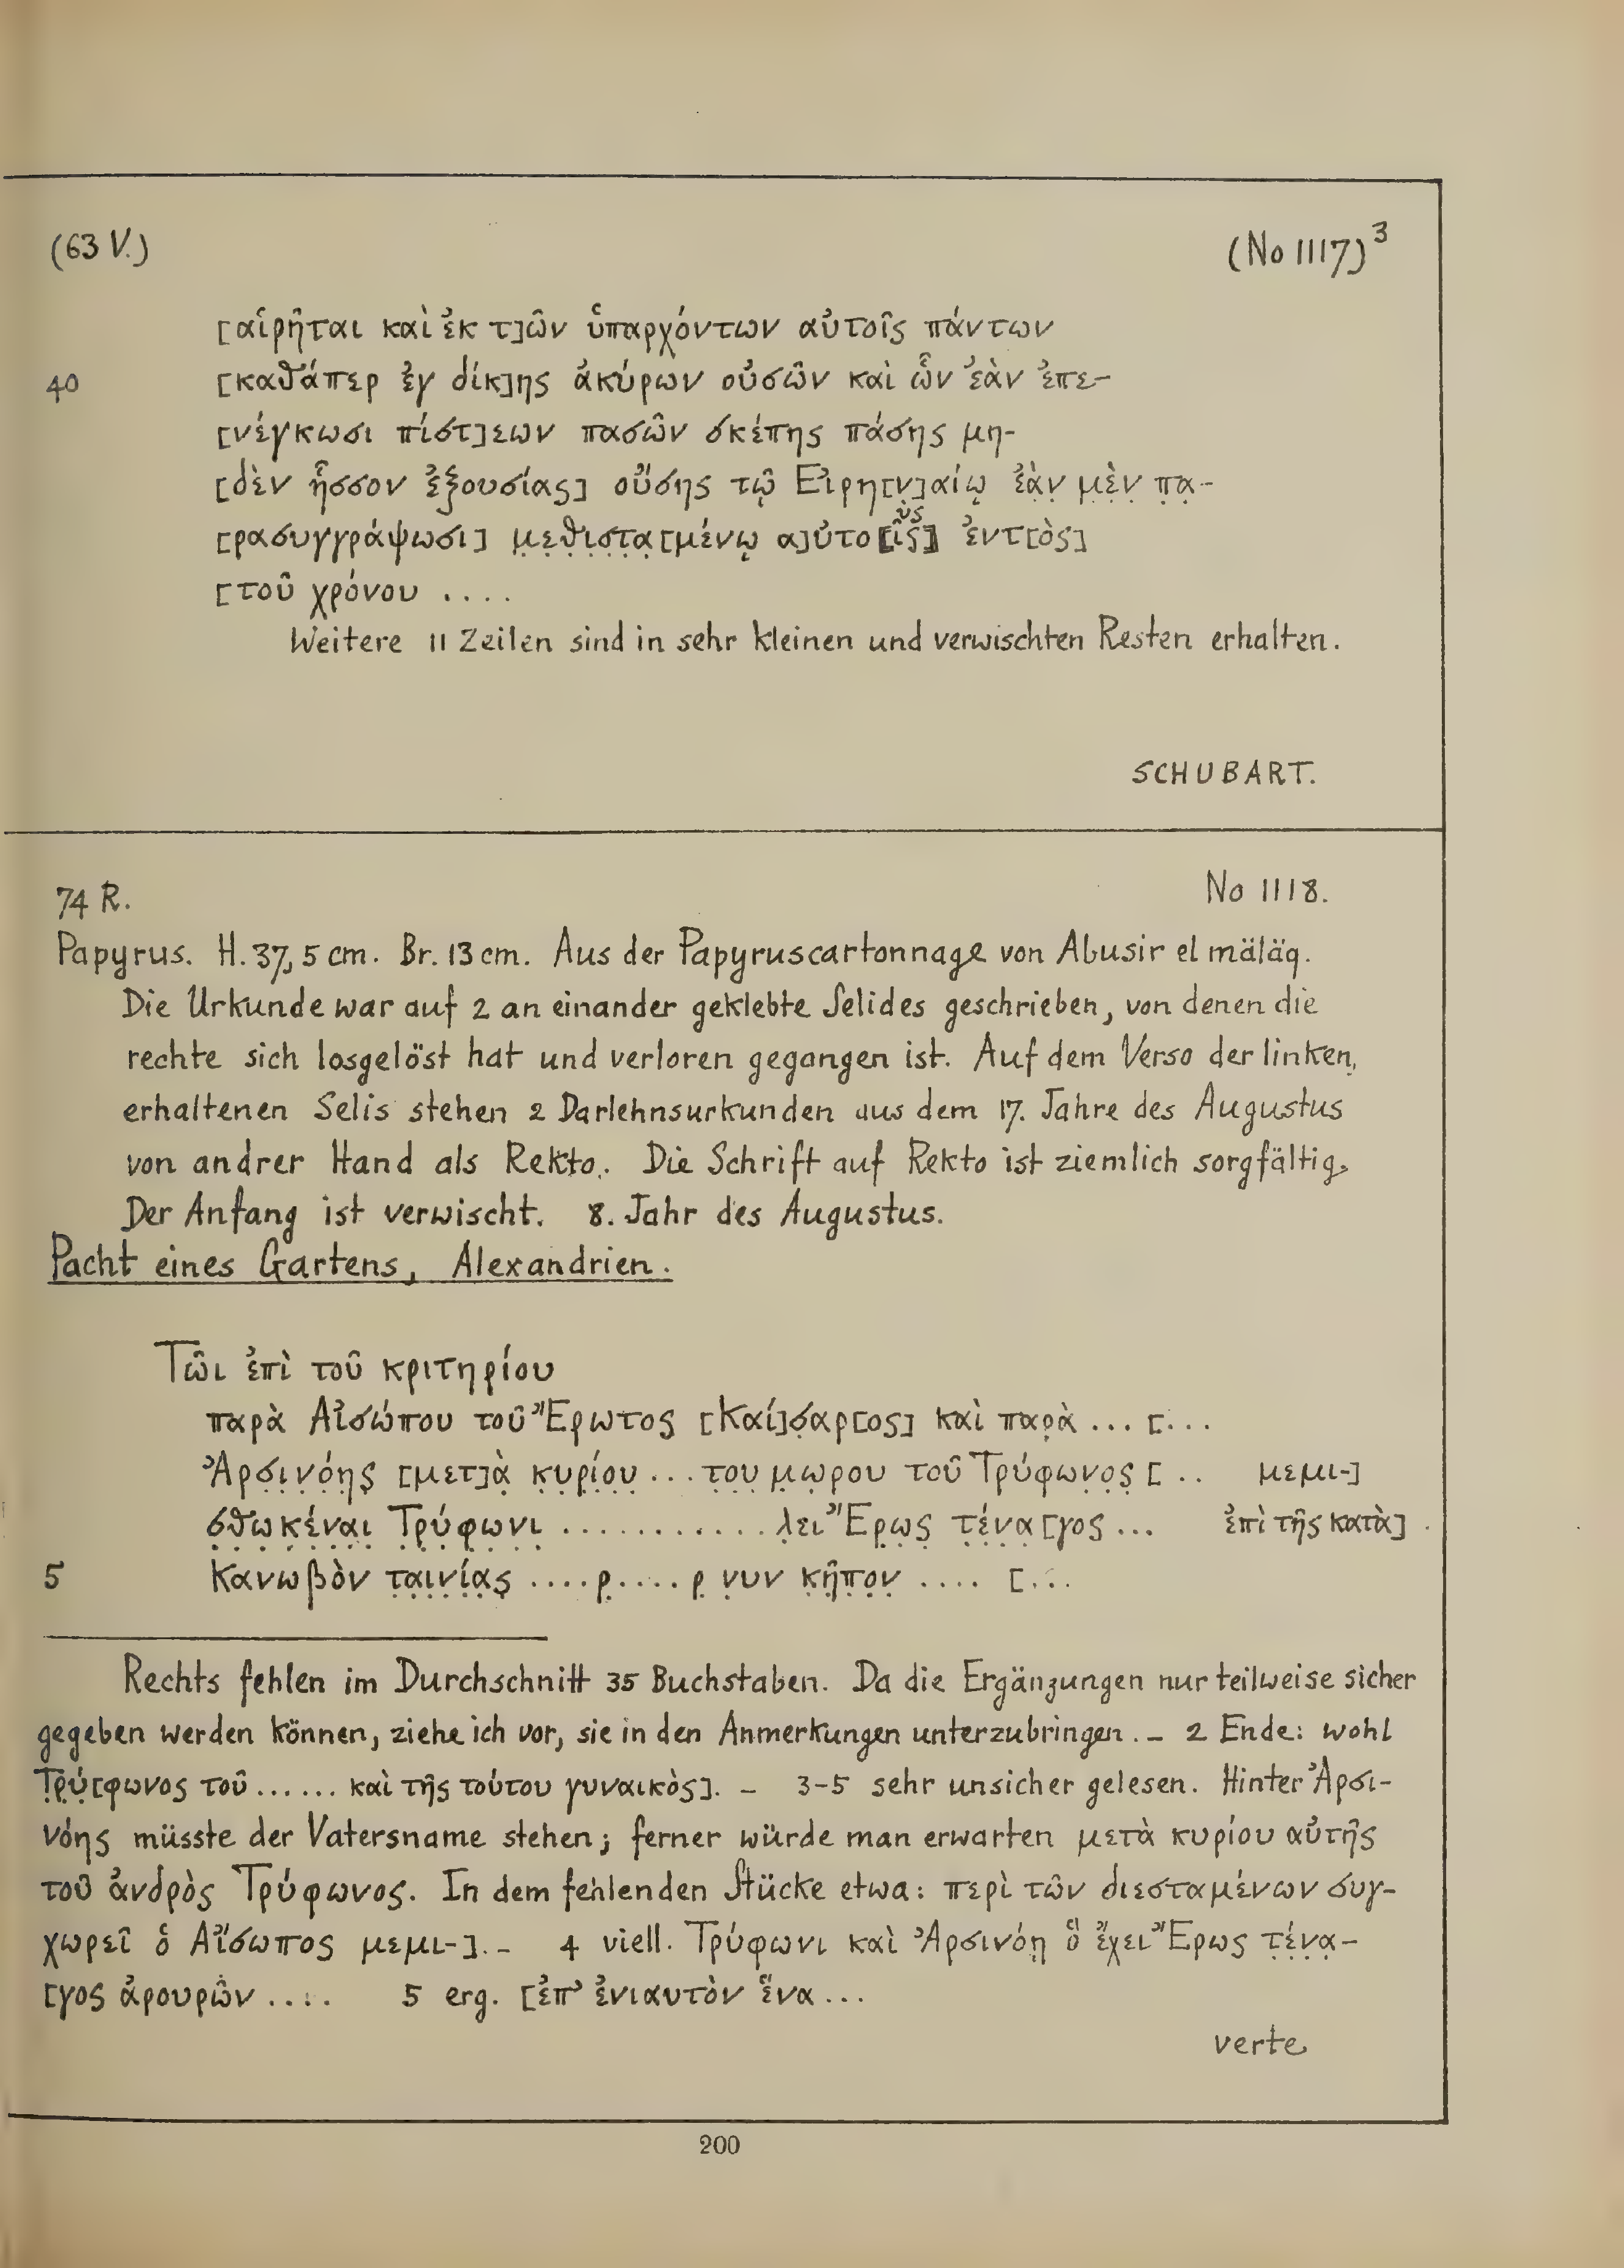 (63 V.) (No 1117)³
[αἱρῆται καὶ ἐκ τ]ῶν ὑπαρχόντων αὐτοῖς πάντων
40 [καθάπερ ἐγ δίκ]ης ἀκύρων οὐσῶν καὶ ὧν ἐὰν ἐπε-
[νέγκωσι πίστ]εων πασῶν σκέπης πάσης μη-
[δὲν ἧσσον ἐξουσίας] οὔσης τῷ Εἰρη[ν]αίῳ ἐὰ̣ν̣ μ̣ὲ̣ν̣ π̣α̣-
[ρασυγγράψωσι] μ̣ε̣θ̣ι̣σ̣τ̣α̣[μένῳ α]ὐτο[ῖς] ὺς ἐντ[ὸς]
[τοῦ χρόνου ....
Weitere 11 Zeilen sind in sehr kleinen und verwischten Resten erhalten.
SCHUBART.
74 R. No 1118.
Papyrus. H. 37,5 cm. Br. 13 cm. Aus der Papyruscartonnage von Abusir el mäläq.
Die Urkunde war auf 2 an einander geklebte Selides geschrieben, von denen die
rechte sich losgelöst hat und verloren gegangen ist. Auf dem Verso der linken,
erhaltenen Selis stehen 2 Darlehnsurkunden aus dem 17. Jahre des Augustus
von andrer Hand als Rekto. Die Schrift auf Rekto ist ziemlich sorgfältig.
Der Anfang ist verwischt. 8. Jahr des Augustus.
Pacht eines Gartens, Alexandrien.
Τῶι ἐπὶ τοῦ κριτηρίου
παρὰ Αἰσώπου τοῦ Ἔρωτος [Καί]σ̣αρ[ος] καὶ παρ̣ὰ ... [...
Ἀ̣ρ̣σ̣ι̣ν̣ό̣η̣ς̣ [μετ]ὰ̣ κ̣υ̣ρ̣ί̣ο̣υ̣ ... τ̣ο̣υ̣ μ̣ω̣ρου τοῦ Τρύφω̣ν̣ο̣ς̣ [.. μεμι-]
σ̣θ̣ω̣κ̣έ̣ν̣α̣ι̣ Τ̣ρ̣ύ̣φ̣ω̣ν̣ι̣ ............ λ̣ει Ἔρ̣ω̣ς̣ τ̣έ̣ν̣α̣[γος ... ἐπὶ τῆς κατὰ]
5 Κανωβὸν τ̣α̣ι̣ν̣ί̣α̣ς̣ ....ρ̣....ρ̣ ν̣υν κ̣ῆ̣π̣ο̣ν̣ .... [...
Rechts fehlen im Durchschnitt 35 Buchstaben. Da die Ergänzungen nur teilweise sicher
gegeben werden können, ziehe ich vor, sie in den Anmerkungen unterzubringen. – 2 Ende: wohl
Τ̣ρ̣ύ̣[φωνος τοῦ ...... καὶ τῆς τούτου γυναικὸς]. – 3-5 sehr unsicher gelesen. Hinter Ἀρσι-
νόης müsste der Vatersname stehen; ferner würde man erwarten μετὰ κυρίου αὐτῆς
τοῦ ἀνδρὸς Τρύφωνος. In dem fehlenden Stücke etwa: περὶ τῶν διεσταμένων συγ-
χωρεῖ ὁ Αἴσωπος μεμι-]. – 4 viell. Τρύφωνι καὶ Ἀρσινόῃ ὃ ἔχει Ἔρως τ̣έ̣ν̣α̣-
[γος ἀρουρῶν .... 5 erg. [ἐπ' ἐνιαυτὸν ἕνα ...
verte
200